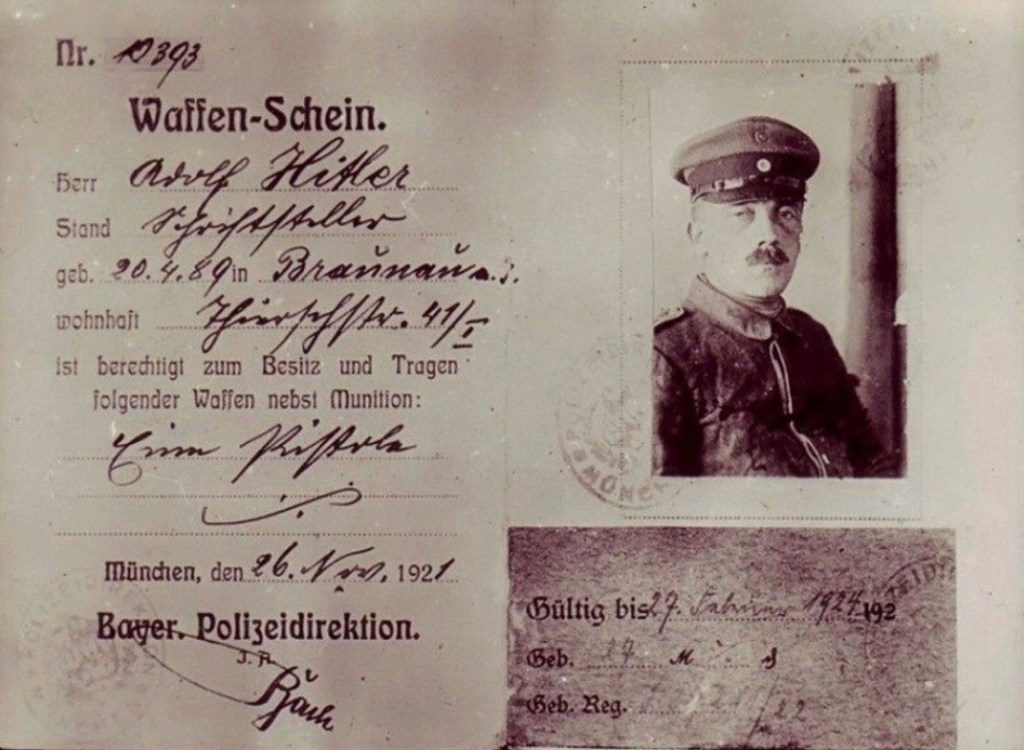 Nr. 10393
Waffen-Schein.
Herr Adolf Hitler
Stand Schriftsteller
geb. 20.4.89 in Braunau a. I.
wohnhaft Thierschstr. 41/I
ist berechtigt zum Besitz und Tragen
folgender Waffen nebst Munition:
Eine Pistole
München, den 26. Nov. 1921
Bayer. Polizeidirektion.
J. A.
MÜNCH
Gültig bis 27. Februar 1924 192
Geb.
Geb. Reg.